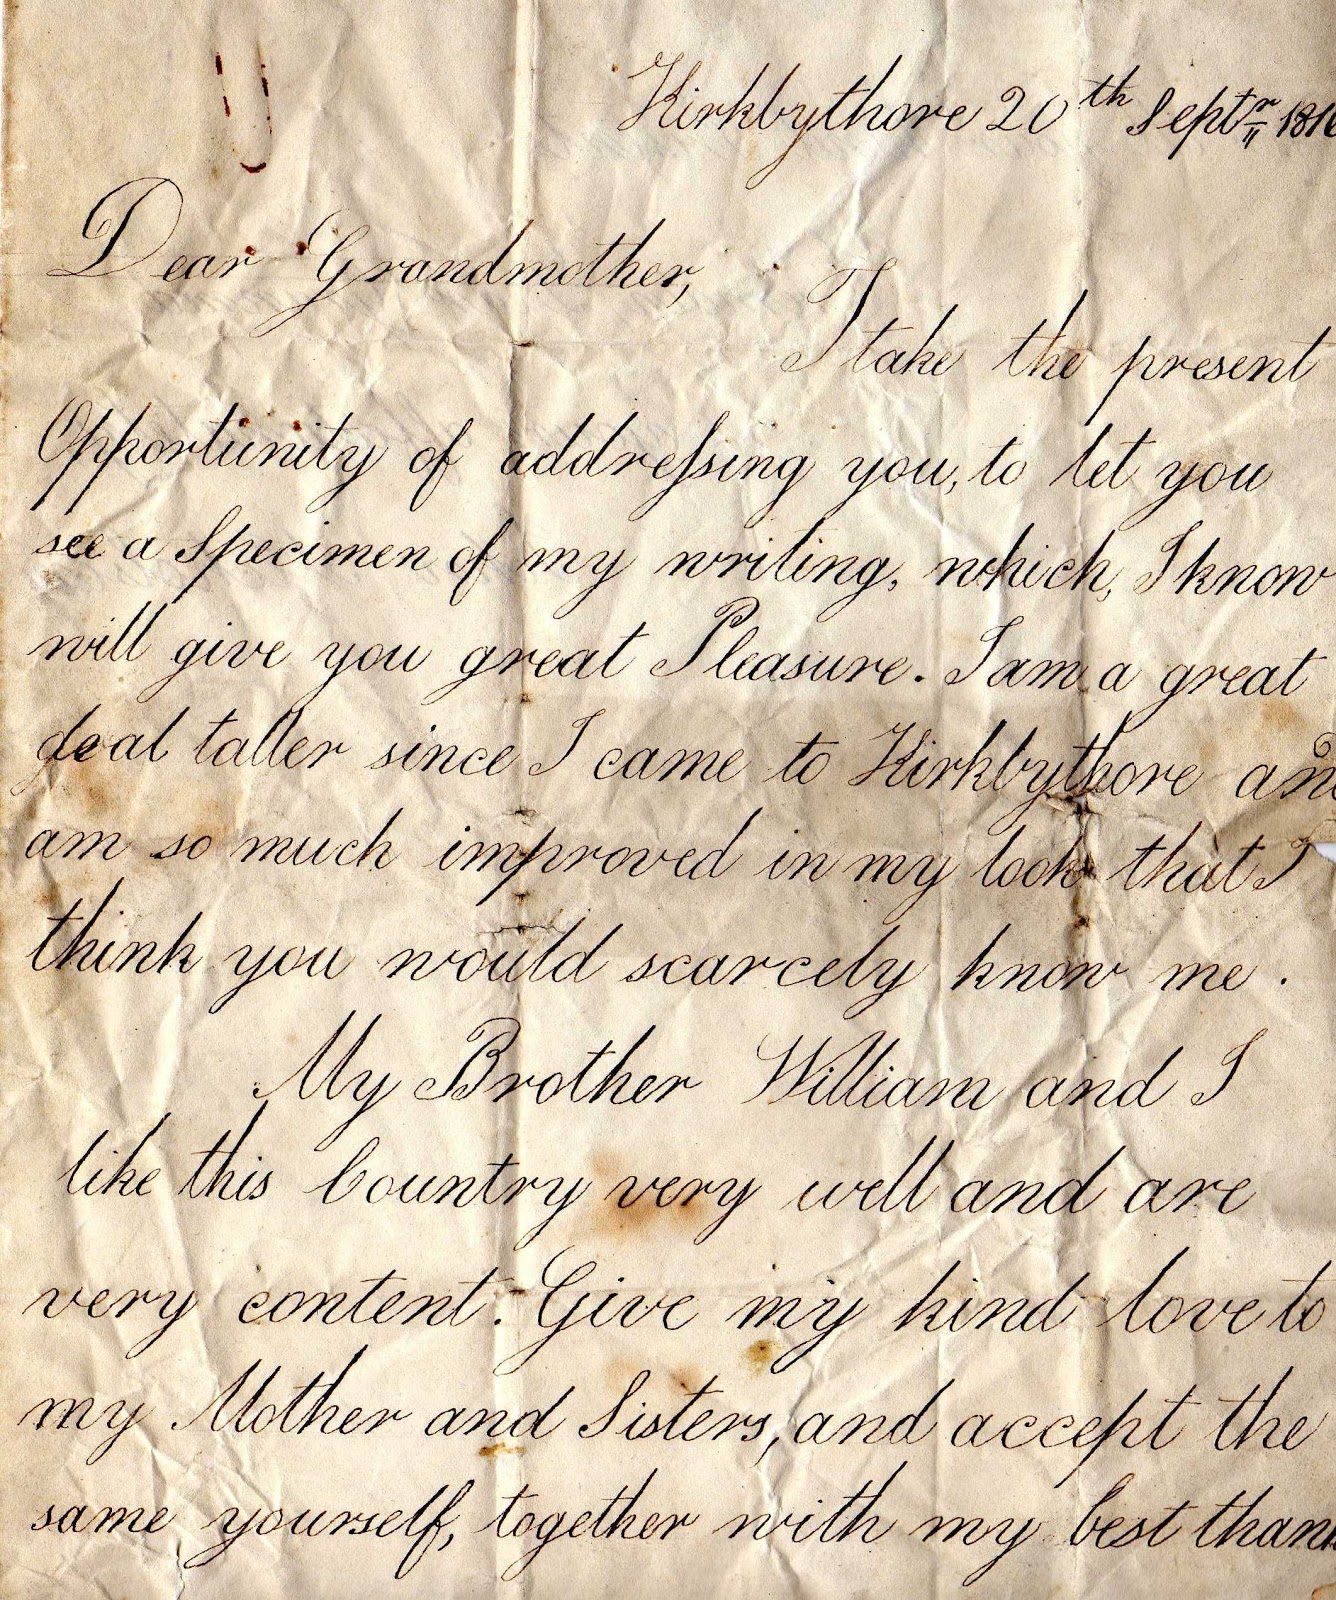 Kirkbythore 20th Septr 181
Dear Grandmother,
I take the present
Opportunity of addreſsing you, to let you
see a Specimen of my writing, which, I know
will give you great Pleasure. I am a great
deal taller since I came to Kirkbythore and
am so much improved in my look that I
think you would scarcely know me.
My Brother William and I
like this Country very well and are
very content. Give my kind love to
my Mother and Sisters, and accept the
same yourself, together with my best thank